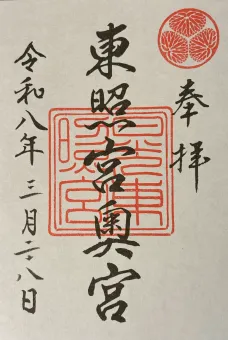 奉拝
東照宮奥宮
令和八年三月二十八日